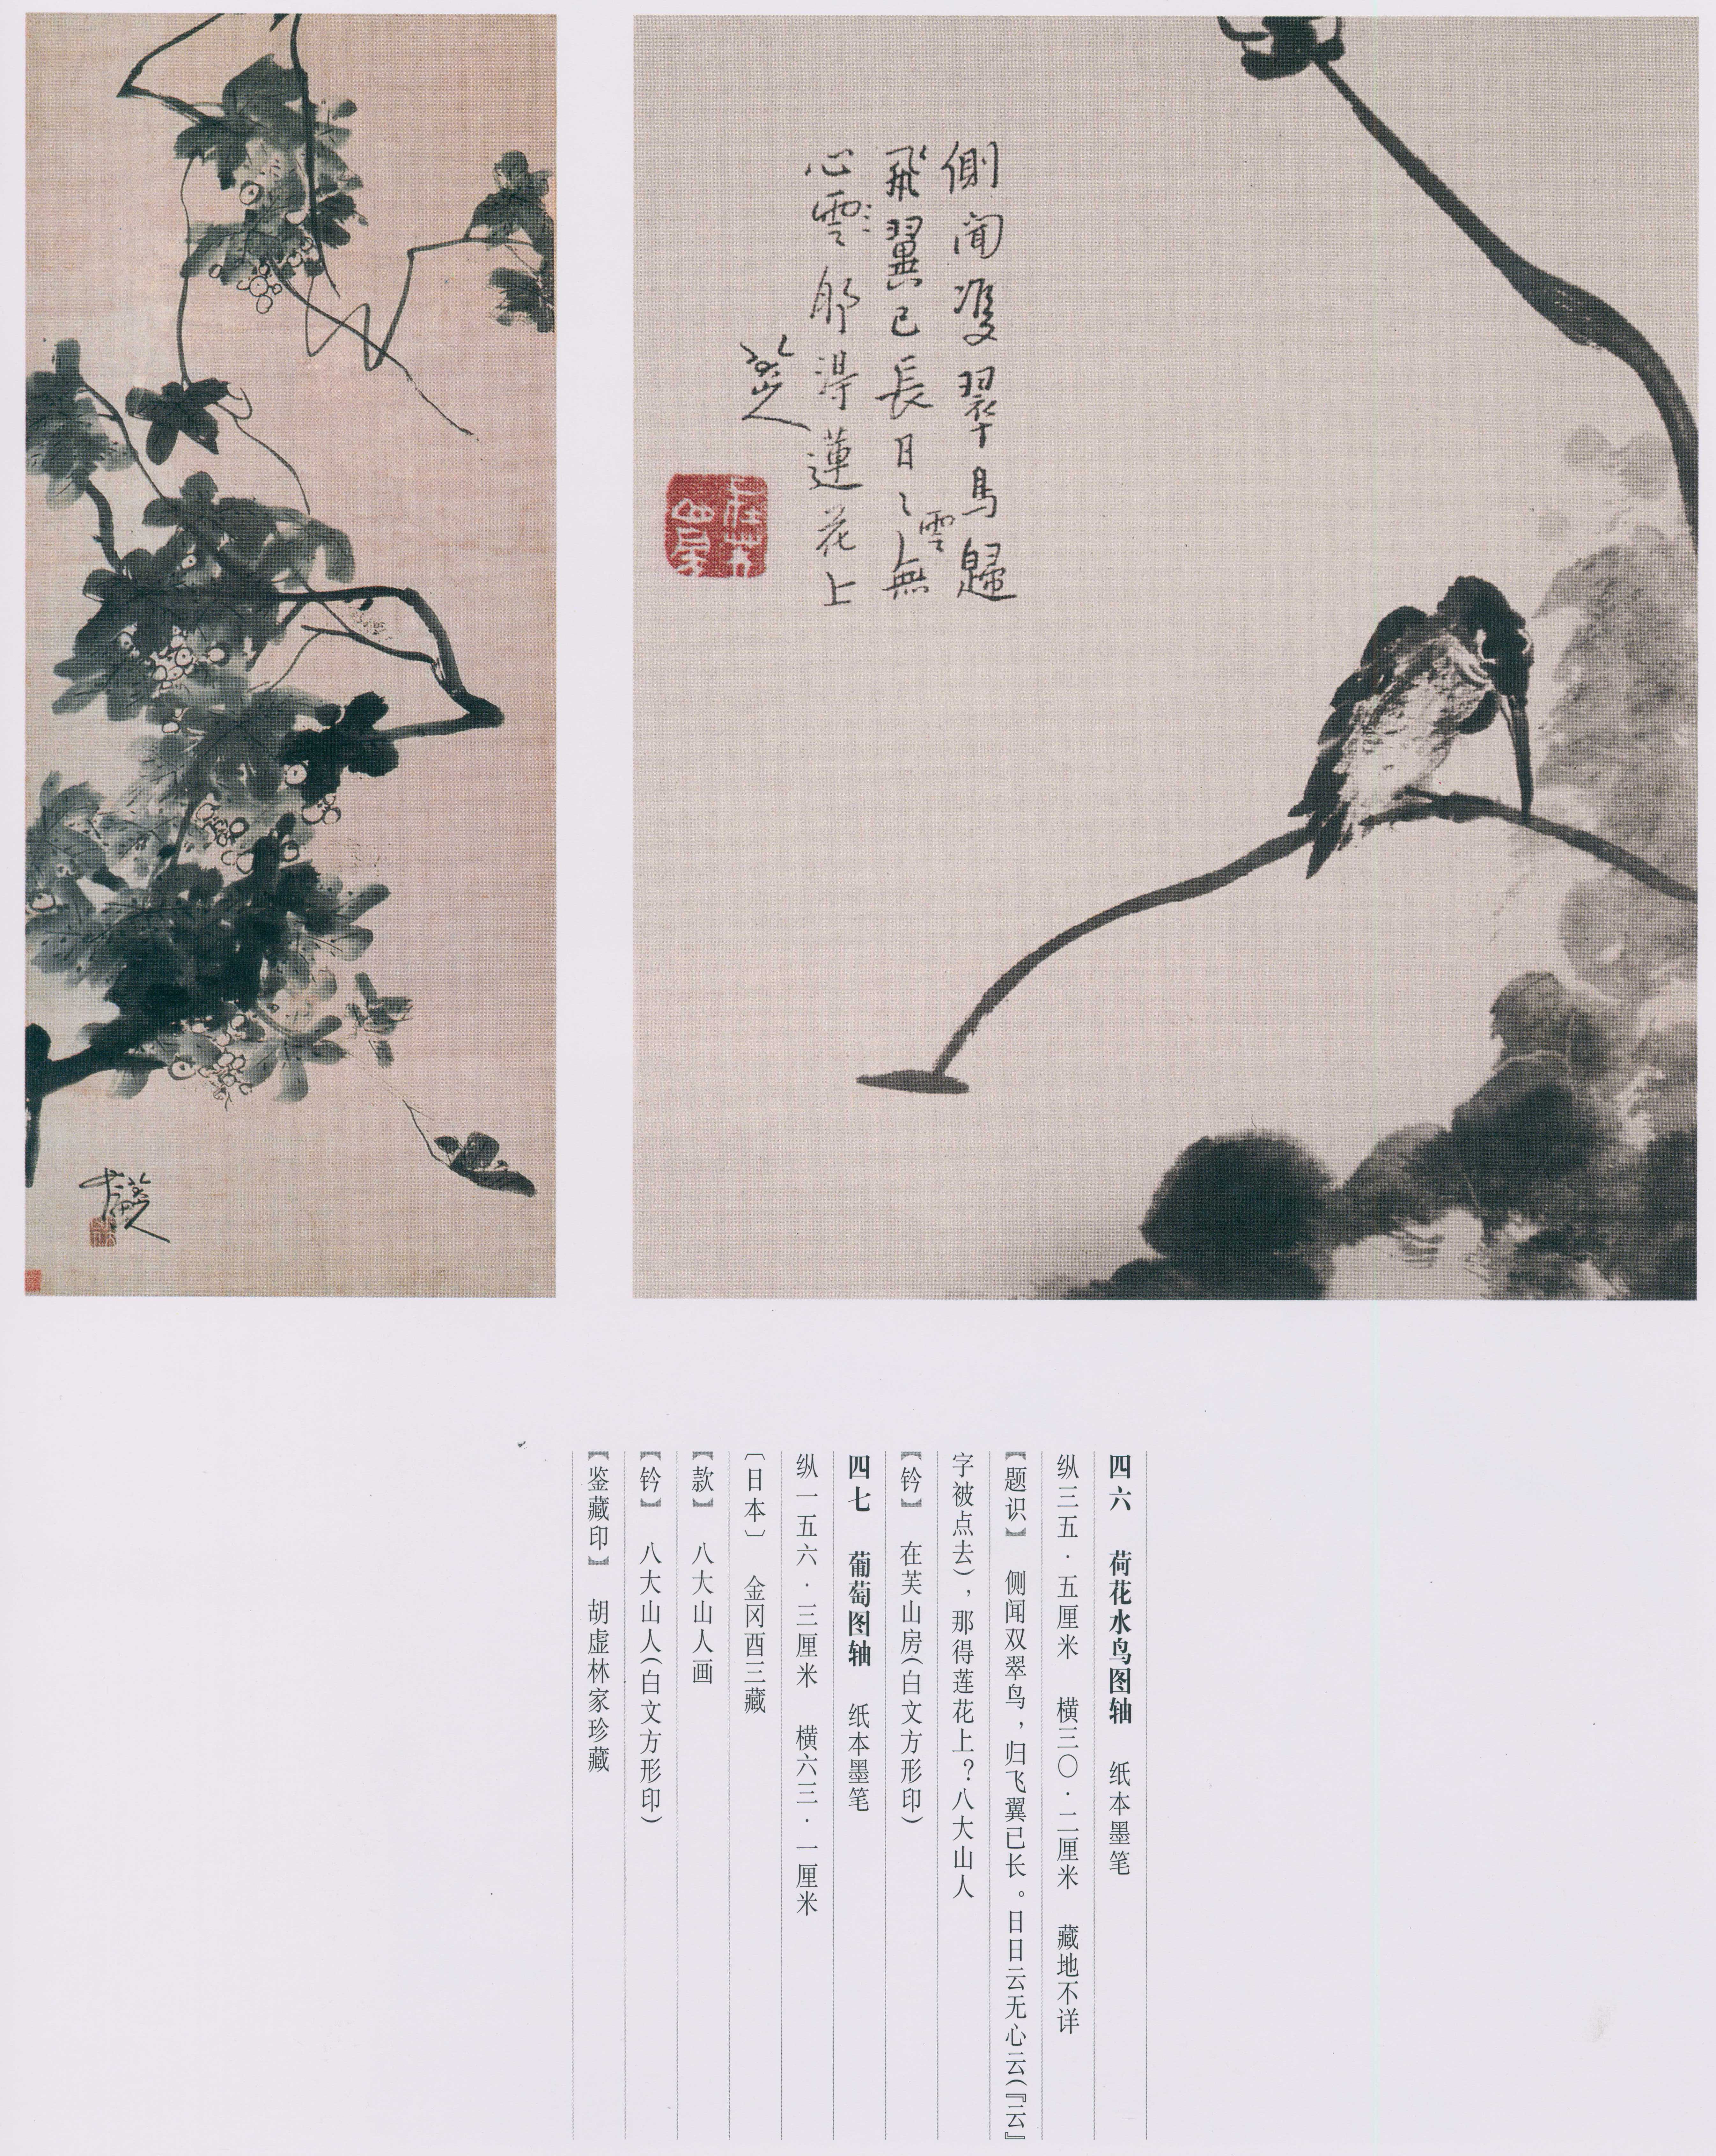 側聞雙翠鳥歸
飛翼已長日〻雲無
心雲那得蓮花上
八大山人
在芙山房
八大山人画
四六　荷花水鸟图轴　纸本墨笔
纵三五·五厘米　横三〇·二厘米　藏地不详
【题识】　侧闻双翠鸟，归飞翼已长。日日云无心云（『云』
字被点去），那得莲花上？八大山人
【钤】　在芙山房（白文方形印）
四七　葡萄图轴　纸本墨笔
纵一五六·三厘米　横六三·一厘米
〔日本〕　金冈酉三藏
【款】　八大山人画
【钤】　八大山人（白文方形印）
【鉴藏印】　胡虚林家珍藏